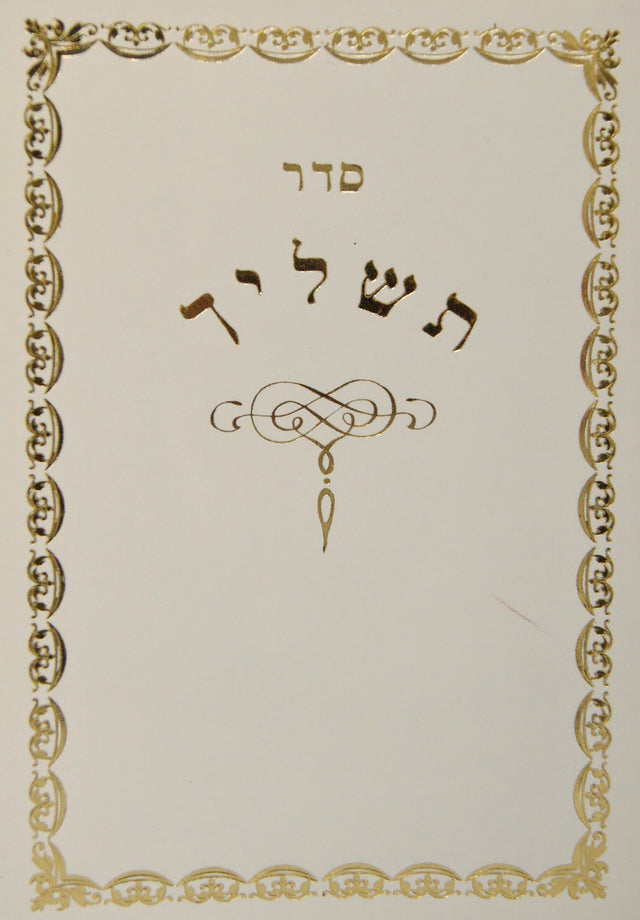 סדר
תשליך